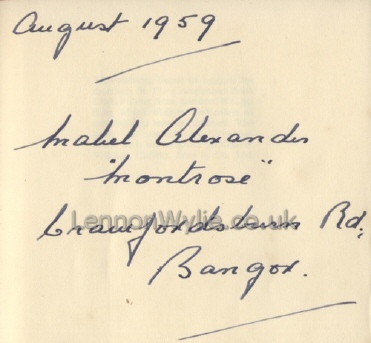 August 1959
Mabel Alexander
"Montrose"
LennonWylie.co.uk
Crawfordsburn Rd,
Bangor.